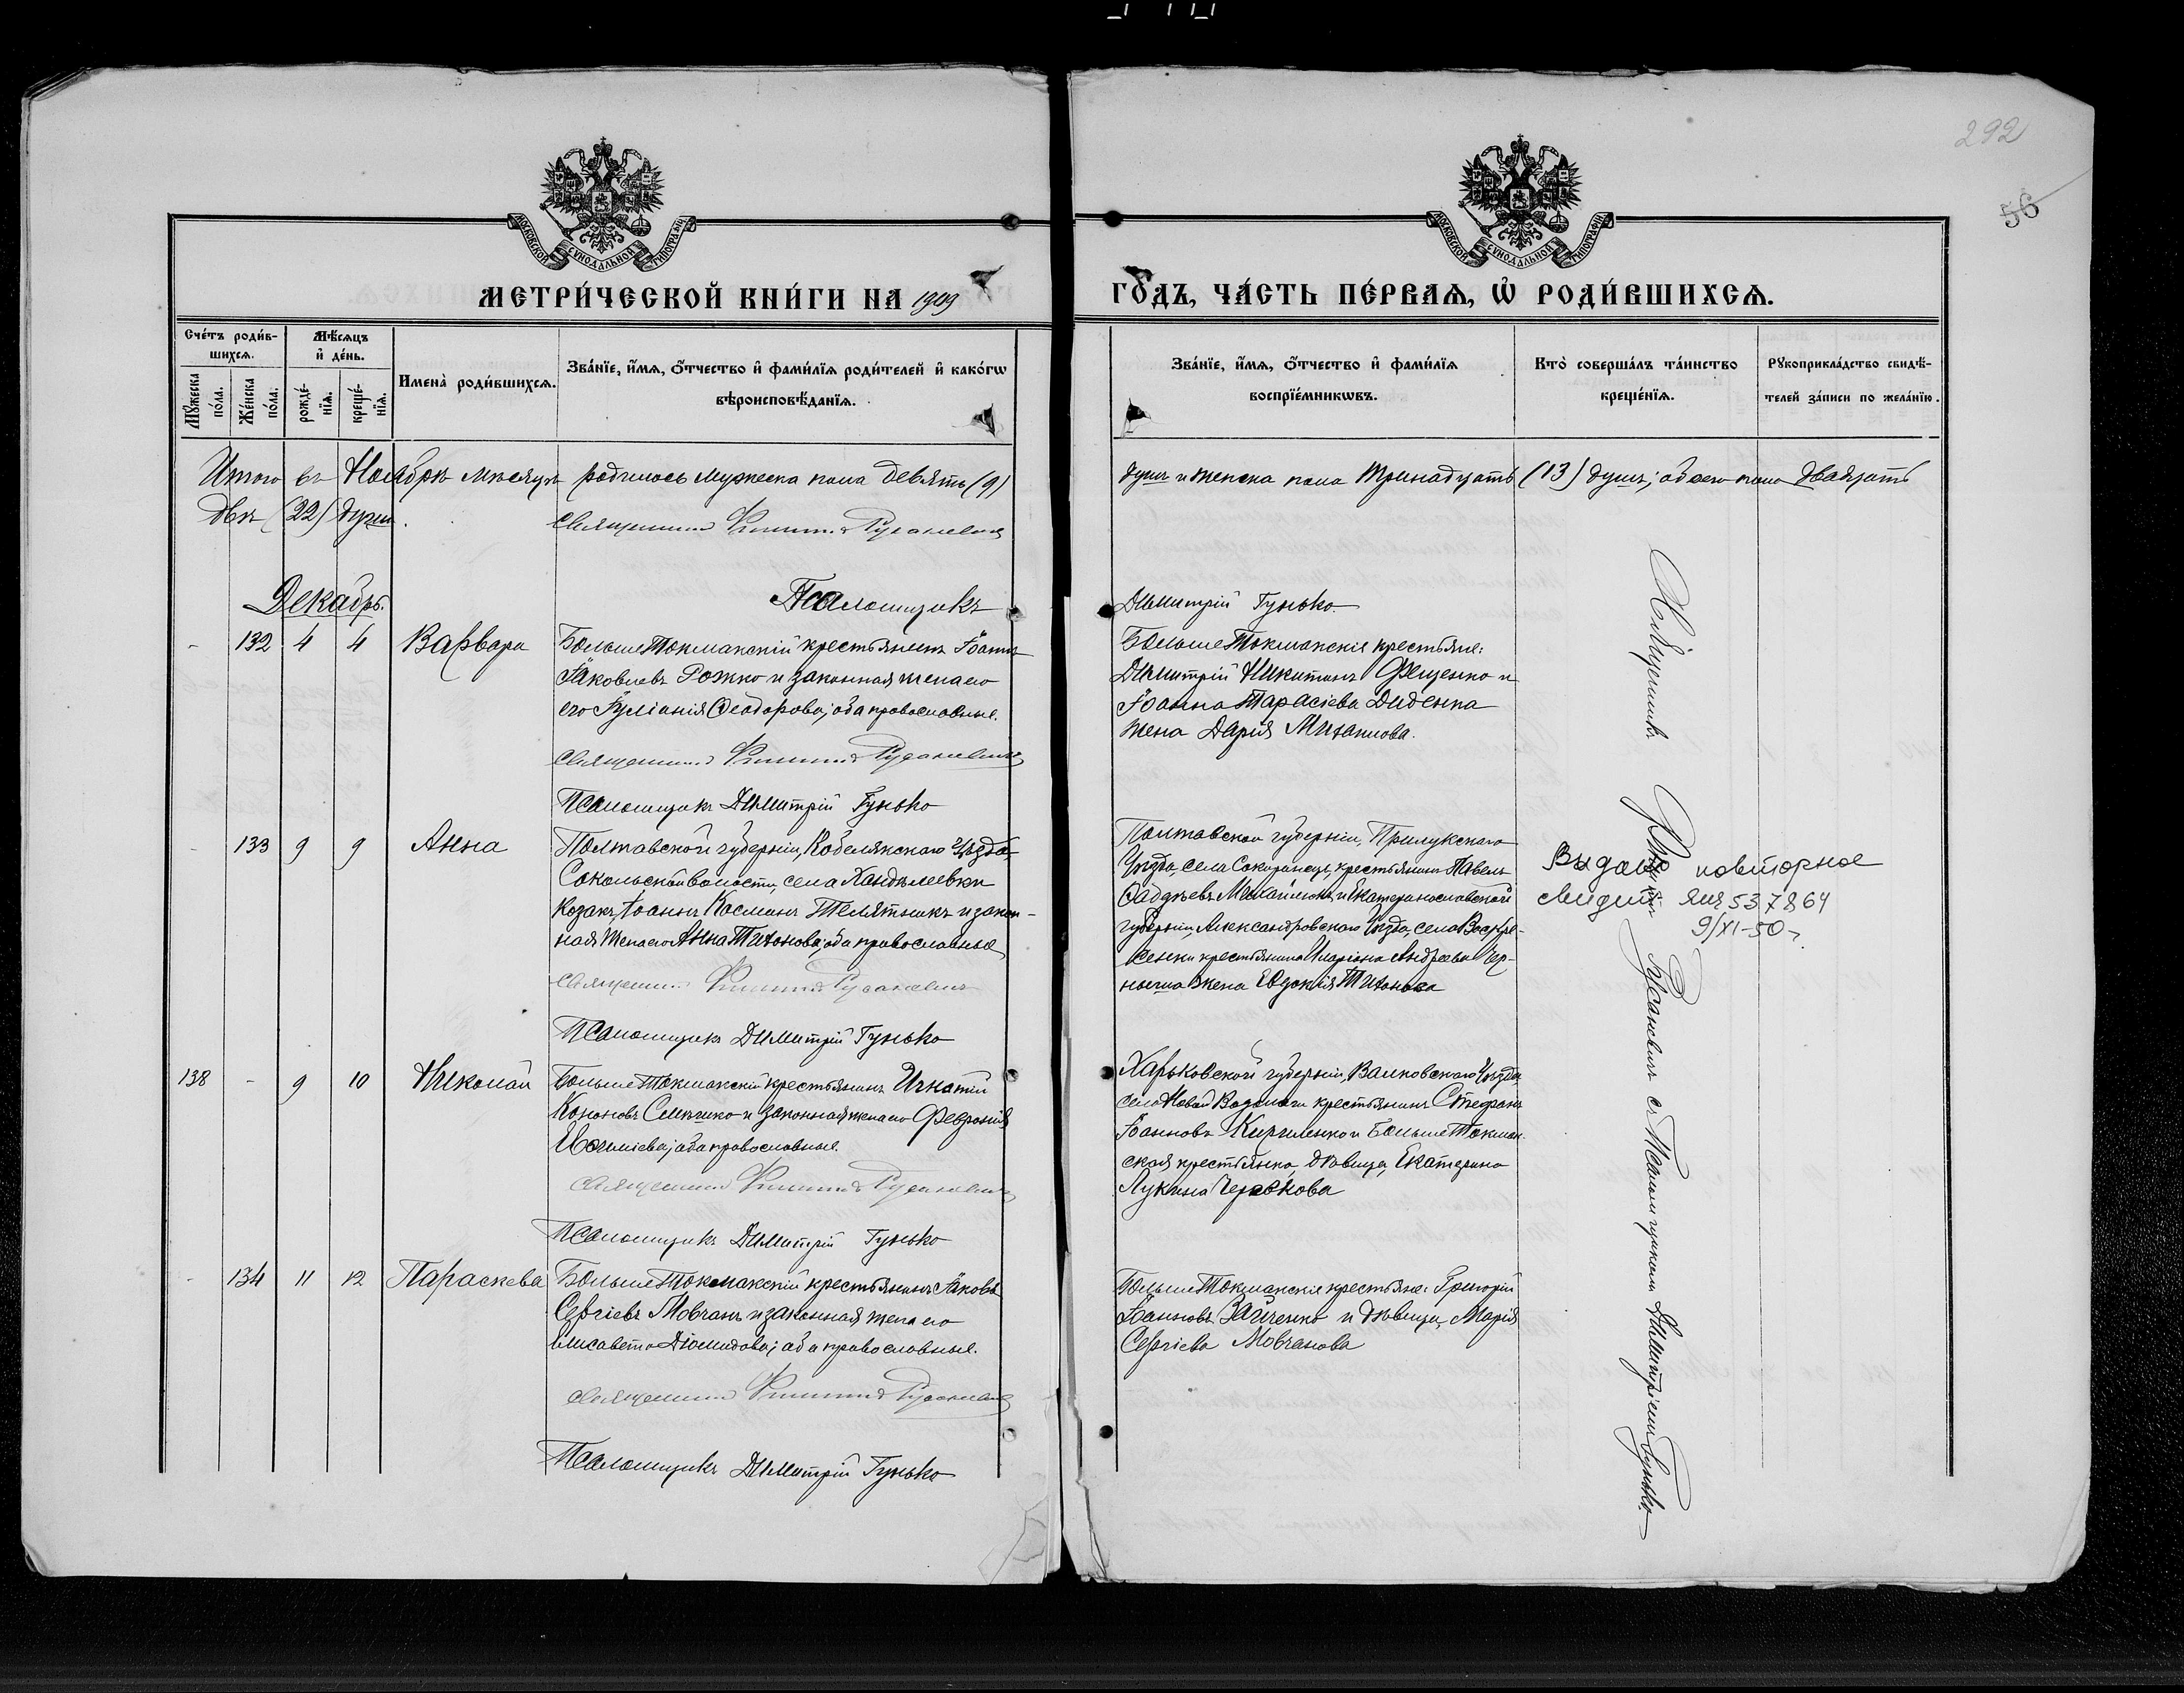 292
56
МОСКОВСКОЙ СѴНОДАЛЬНОЙ ТИПОГРАФІИ
МОСКОВСКОЙ СѴНОДАЛЬНОЙ ТИПОГРАФІИ
МЕТРИ́ЧЕСКОЙ КНИ́ГИ НА 1909
ГО́ДЪ, ЧА́СТЬ ПЕ́РВАѦ, Ѡ҆ РОДИ́ВШИХСѦ.
Сче́тъ роди́в-
шихсѧ.
Мꙋ́жеска по́ла.
Же́нска по́ла.
Мѣ́сѧцъ
и҆ де́нь.
рожде́-
нїѧ.
креще́-
нїѧ.
Имена̀ роди́вшихсѧ.
Зва́нїе, и҆́мѧ, ѻ҆́тчество и҆ фами́лїѧ роди́телей и҆ како́гѡ
вѣроисповѣ́данїѧ.
Зва́нїе, и҆́мѧ, ѻ҆́тчество и҆ фами́лїѧ
воспрїе́мникѡвъ.
Кто̀ соверша́лъ та́инство
креще́нїѧ.
Рꙋкоприкла́дство свидѣ́-
телей за́писи по жела́нїю.
Итого въ Ноябрѣ мѣсяцѣ родилось мужеска пола девять (9)
душъ и женска пола тринадцать (13) душъ; обоего пола двадцать
двѣ (22) души.
Священникъ Филиппъ Русаневичъ
Декабрь.
Псаломщикъ
Димитрій Гунько.
- 132 4 4 Варвара
Больше Токмакскій крестьянинъ Іоаннъ
Іаковлевъ Рожко и законная жена его
его Іуліанія Ѳеодорова; оба православные.
Священникъ Филиппъ Русаневичъ
Псаломщикъ Димитрій Гунько
Больше Токмакскіе крестьяне:
Димитрій Никитинъ Фещенко и
Іоанна Тарасіева Диденка
жена Дарія Михаилова.
- 133 9 9 Анна
Полтавской губерніи, Кобелякскаго уѣзда,
Сокольской волости, села Хандолеевки
козакъ Іоаннъ Косминъ Телятникъ и закон-
ная жена его Анна Титонова; оба православные
Священникъ Филиппъ Русаневичъ
Псаломщикъ Димитрій Гунько
Полтавской губерніи, Прилукскаго
уѣзда, села Сокиринецъ, крестьянинъ Павелъ
Фаддѣевъ и Екатеринославской
губерніи, Александровскаго уѣзда, села Воскре-
сенки крестьянина Иларіона Андреева Чер-
ныша жена Евдокія Титонова
Выдано повторное
свидит. ЯЩ 537864
9/XI-50
138 - 9 10 Николай
Больше Токмакскій крестьянинъ Игнатій
Кононовъ и законная жена его Февронія
оба православные.
Священникъ Филиппъ Русаневичъ
Псаломщикъ Димитрій Гунько
Харьковской губерніи, Валковскаго уѣзда,
села Новой Водолаги крестьянинъ Стефанъ
Іоанновъ Кириленко и Больше Токмак-
ская крестьянка, дѣвица, Екатерина
Лукина Червкова
- 134 11 12 Параскева
Больше Токмакскій крестьянинъ Іаковъ
Сергіевъ Мовчанъ и законная жена его
Елисавета Діомидова; оба православные.
Священникъ Филиппъ Русаневичъ
Псаломщикъ Димитрій Гунько
Больше Токмакскіе крестьяне: Григорій
Іоанновъ Зайченко и дѣвица, Марія
Сергіева Мовчанова
Священникъ Филиппъ Русаневичъ съ Псаломщикомъ Димитріемъ Гунько.